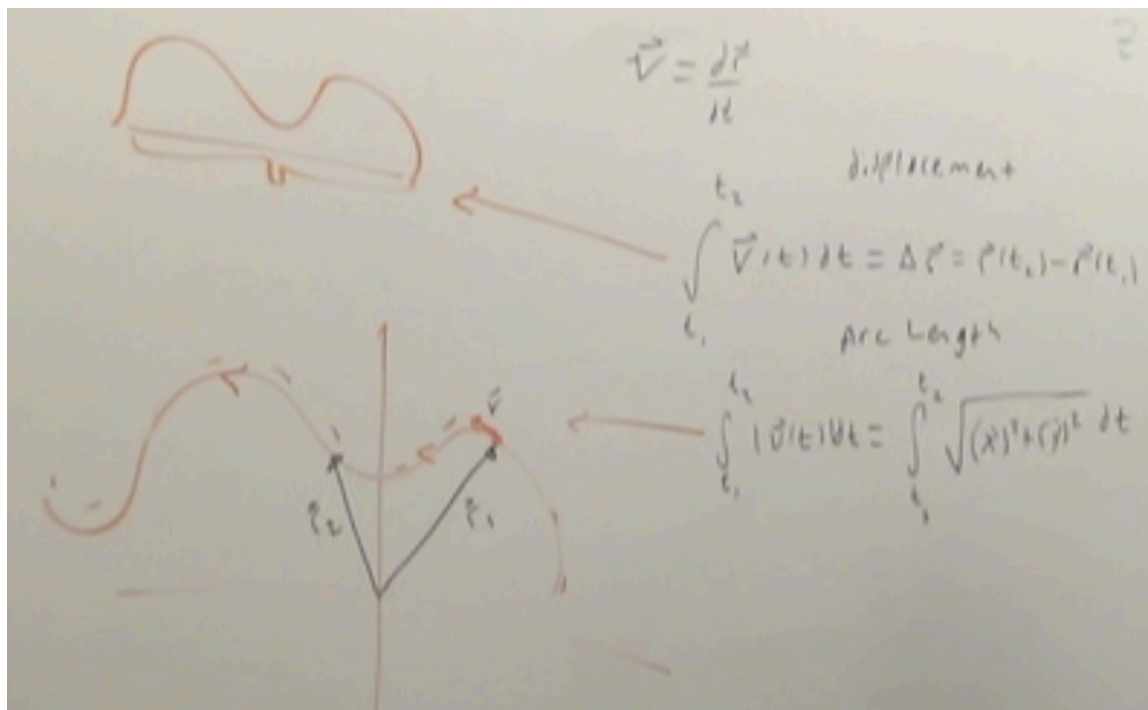 v⃗ = dr⃗/dt
displacement
∫_{t₁}^{t₂} v⃗(t) dt = Δr⃗ = r⃗(t₂) − r⃗(t₁)
Arc Length
∫_{t₁}^{t₂} |v⃗(t)|dt = ∫_{t₁}^{t₂} √((ẋ)² + (ẏ)²) dt
v⃗
r⃗₂
r⃗₁